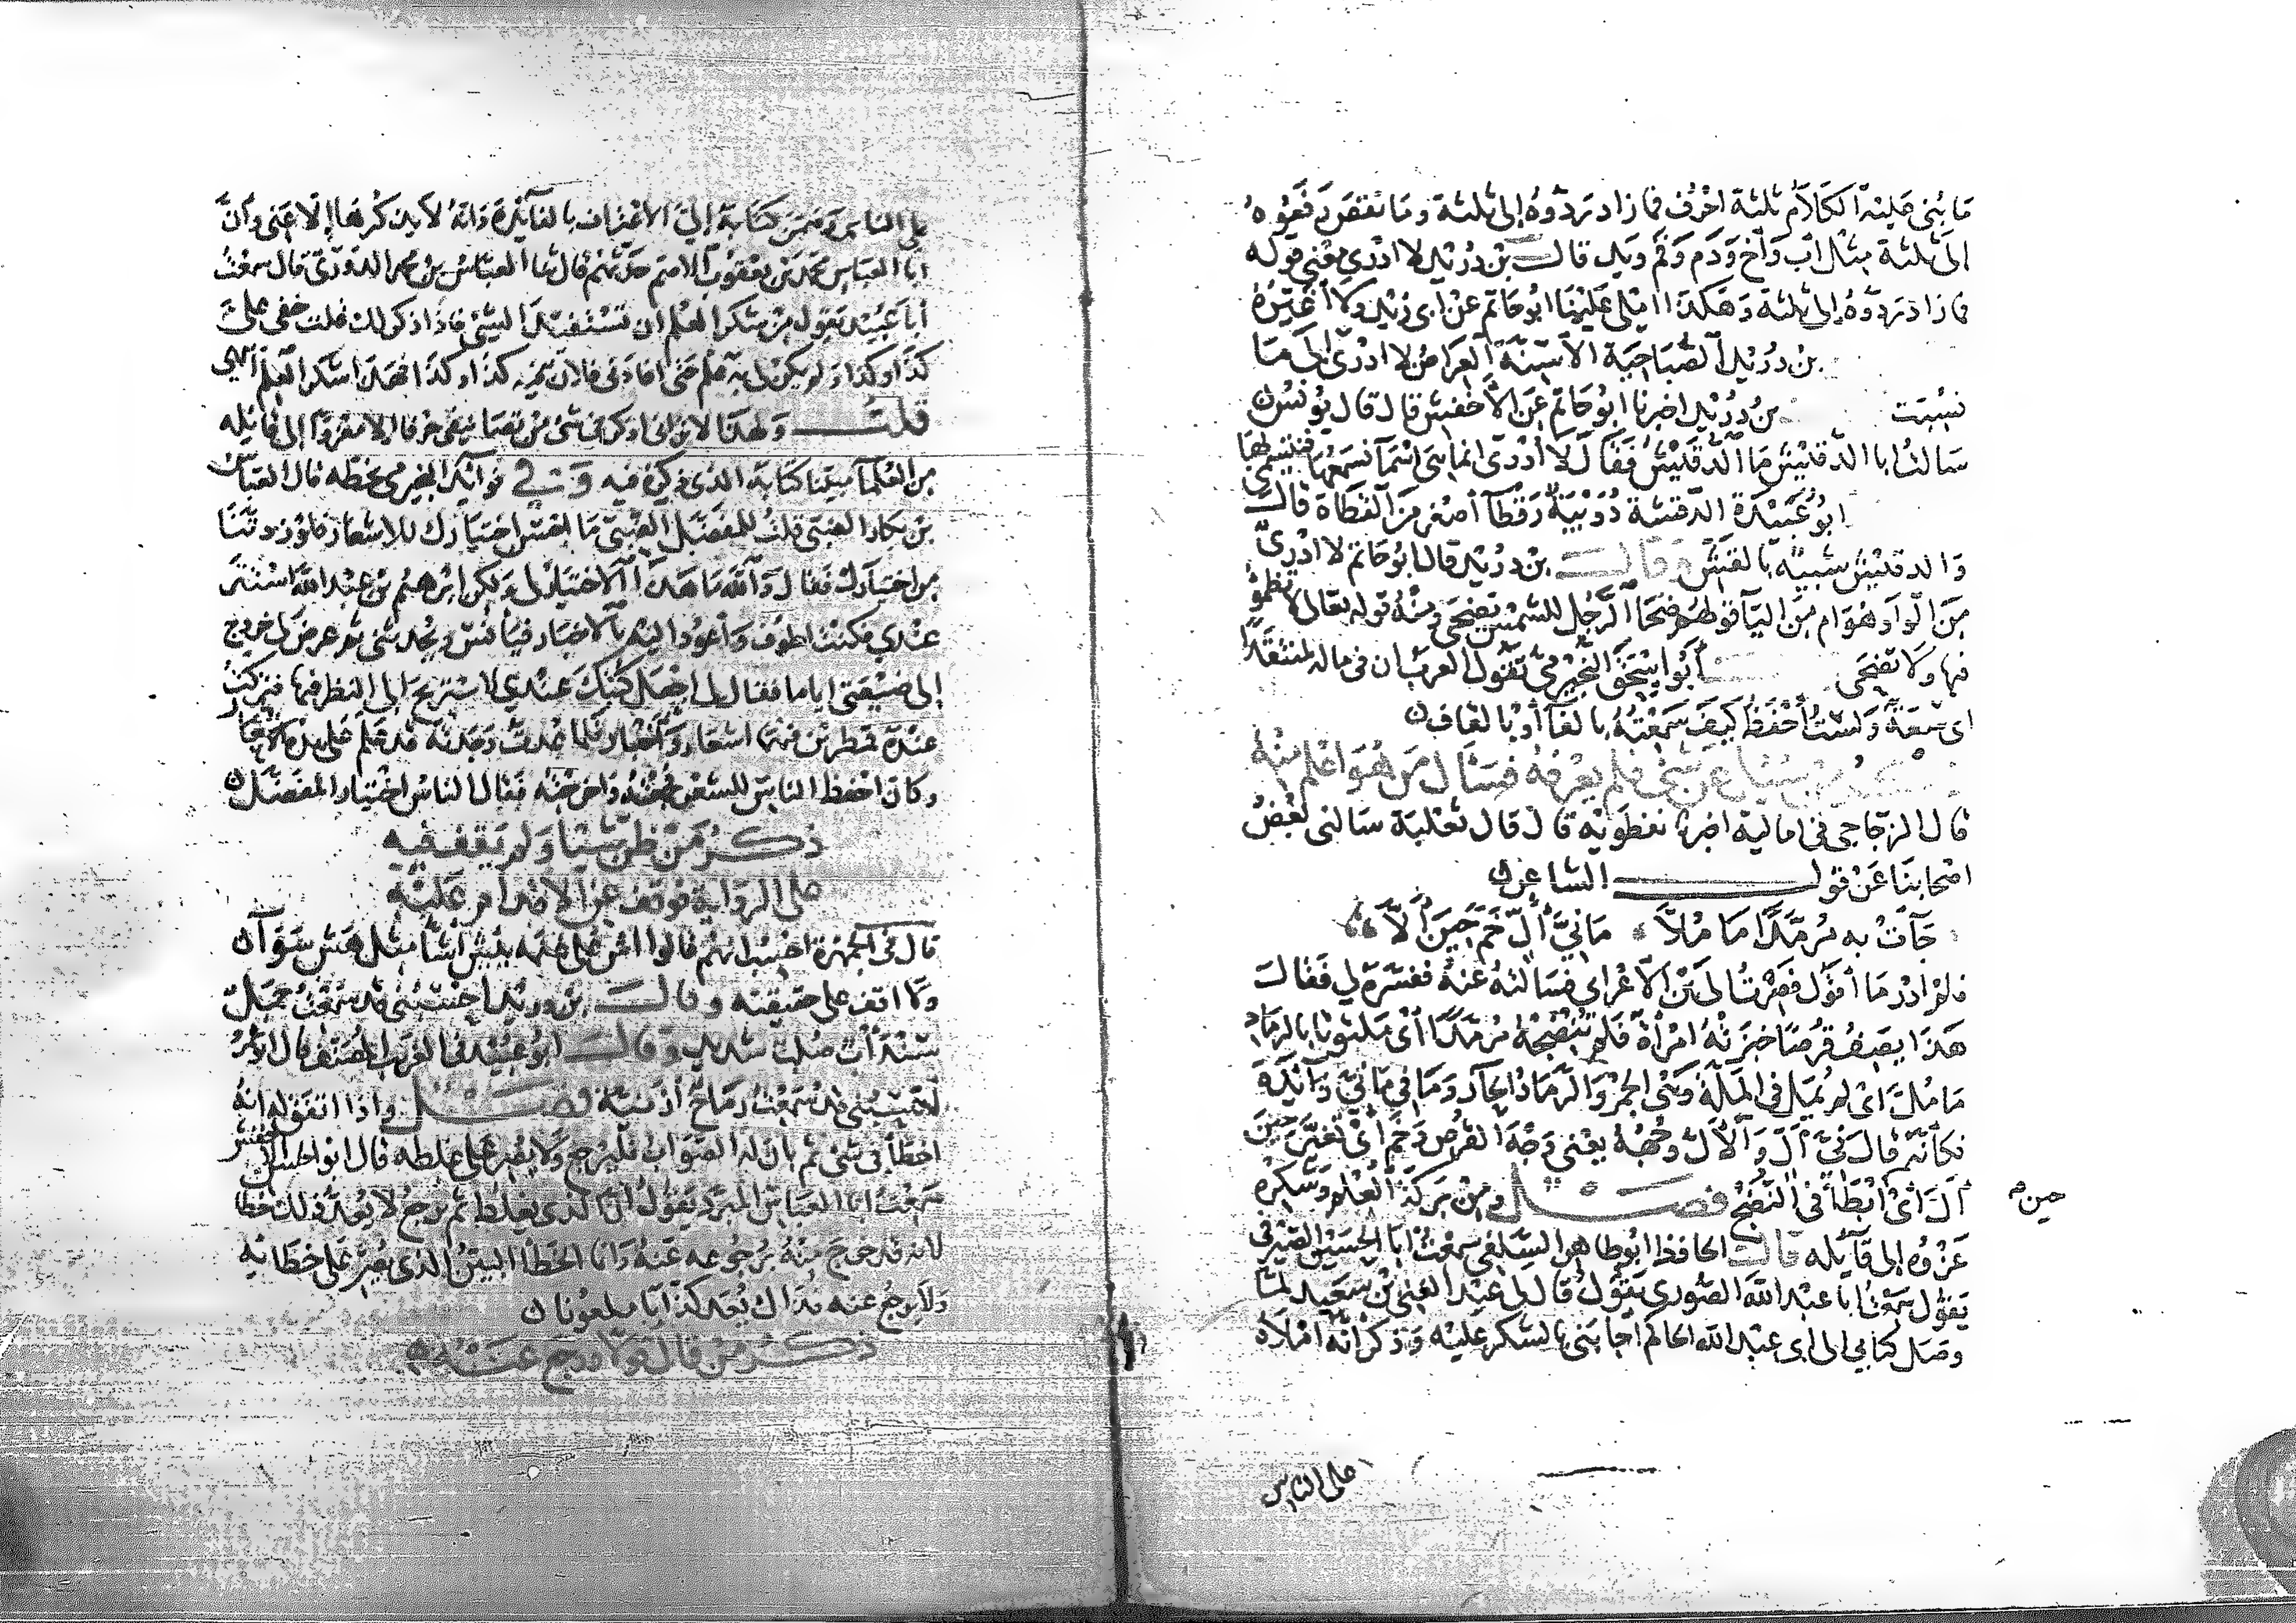 ما بُنى عليْه الكلام ثلثة احْرُف فما زاد ردّوهُ إلى ثلثة وما نقص رفعُوهُ
الى ثلثة مثْل أب وَأخ وَدَم وَفم ويد قالــ بن دُريْد لا ادْرى معْنى قوله
فما زاد ردّوهُ الى ثلثة وَهكذا امْلى عليْنا ابُو حاتم عن أبى زيْد ولا أغيّرهُ
بن دُريْد الصّباحيّة الأسنّة العراضُ لا ادْرى الى ما
نسُبَت بن دُريْد اخبرنا ابُو حاتم عن الأخْفش قال قال يُونسُ
سالتُ ابا الدّقيْش ما الدّقيْشُ فقال لا أدْرى انما هى اسْمآ نسْمعُها فنتسمّى بها
ابُو عُبيْدة الدّقشة دُوَيْبّة رقطآ أصْغر من القطاة قالـ
وَالدقيْش شبيه بالنقش وقالــ بن دُريْد قال ابُو حاتم لا ادْرى
من الواو هُو ام من اليآ قولهم ضحا الرّجُل للشمْس يضحى ومنْهُ قوله تعالى لا تظمؤ
فيها ولا تضحى أبُو اسْحق النّجيْرمىّ تقُول العربُ ان فى ماله لمنتفدًا
اى سعَةً ولسْتُ أحْفظُ كيف سمعْتُهُ بالفآ أو بالقاف
ذكر من سُئل عن شئ فلم يعْرفهُ فسَأل من هُو اعْلم منهُ
قال الزجّاجى فى اماليه اخبرنا نفطويْه قال قال ثعْلب سالنى بعْضُ
اصْحابنا عَن قولــ الشاعر
جآتْ به مُرمّدًا ما مُلّا مانىَّ ألٍّ خَمّ حينَ ألّا
فلم ادْر ما أقُول فصرْتُ الى بْن الأعْرابى فسَالتُهُ عنهُ ففسّرهُ لى فقال
هذا يصفُ قُرصًا خبزتْهُ امْرأة فلم تُنْضجْهُ مُرمّدًا أىْ مُلوّثًا بالرمَاد
ما مُلّ اى لم يُملّ فى الملّة وهى الجمْر والرّمادُ الحآر وما فى مانىّ زآئدة
فكأنّه قال نىّ ألّ وَالألّ وجْههُ يعْنى وجْه القُرص وخَمّ أىْ تغيّر حين
حين ألّ اىْ ابْطأ فى النّضْج فصــل ومن بركة العلْم وشُكْره
عزْوُه إلى قآئله قالــ الحافظ ابُو طاهر السّلفى سمعْتُ ابا الحسَن الصّيْرفى
يقُول سمعْتُ ابا عبْد الله الصّورى يقُولُ قال لى عبْد الغنى بْن سعيد لمّا
وصَل كتابى الى ابى عبْد الله الحاكم أجابنى بالشكر عليْه وذكر أنّه امْلاهُ
على الناس
على الناس وضمّن كتابهُ إلىّ الأعْتراف بالفآئدة وانّهُ لا يذكُرها إلّا عنى وأنّ
ابا العبّاس محمد بْن يعْقُوب الاصمّ حدّثهم قال ثنا العبّاسُ بن محمد الدّورىّ قال سمعْتُ
أبا عُبيْد يقول من شكر العلم ان تسْتفيْد الشئ فاذا ذكر لك قلت خفى علىّ
كذا وكذا ولم يكن لى به علْم حتى افادنى فلان فيه كذا وكذا فهذا شكر العلم انتهى
قلتــ وَلهذا لا ترانى اذكر فى شئ من تصانيفى حرفا الا معْزوّا إلى قائله
من العُلمآ مبيّنا كتابه الذى ذكرهُ فيه وفى فوآئد النجيرمى بخطّه قال العبّاسُ
بن بكار الضبّى قلتُ للمفضّل الضّبّى ما احْسَن اختيارك للاشعار فلوْ زدْتنا
من اختيارك فقال والله ما هذا الاختيار لى ولكن ابْرهيْم بْن عبْد الله اسْتتر
عنْدى فكنت اطُوفُ وأعُود اليْه بالاخبار فيأنسُ ويُحدّثنى ثم عرض لى خروج
إلى ضيْعتى اياما فقال لى اجْعل كُتُبك عنْدى لاسْتريح الى النظر فيها فتركتُ
عنْدهُ قمطريْن فيهما اشعار وَأخبار فلما عُدتُ وجدْته قد علّم على هذه الاشعار
وكان احْفظ الناس للشعْر فجمعْتُهُ وَاخرجْتُه فقال الناسُ اخْتيار المفضّل
ذكــر من ظنّ شيْئا ولم يقف فيه
على الرّواية فوقف عن الاقدام عليْه
قال فى الجمْهرة احْسبُ انهم قالوا اشّ على غنمه يئش اشّا مثْل هشّ سَوَآ
ولا اقف على حقيقته وقالــ بن دريْد احْسبُنى قد سمعْتُ جملٌ
سنْدأبٌ صُلبٌ شديد وقالــ ابُو عُبيْد فى الغريب المُصنّف قال الأمَوىّ
احْسبُنى قد سمعْتُ رماحٌ أزنيّة فصــل واذا اتفق له انه
اخطأ فى شئ ثم بان له الصوابُ فليرْجعْ ولا يُصرّ على غلطه قال ابُو الحسن الاخفش
سمعْتُ ابا العباس المبرّد يقُول انّ الذى يغلط ثم يرْجعُ لا يُعدّ ذلك خطأ
لانه قد خرج منْهُ برُجوعه عنهُ وَانما الخطأ البيّنُ الذى يُصرّ على خطائه
ولا يرجعُ عنه فذاك يُعدّ كذّابا ملعُونا
ذكــر من قال قولا ورجع عنْه